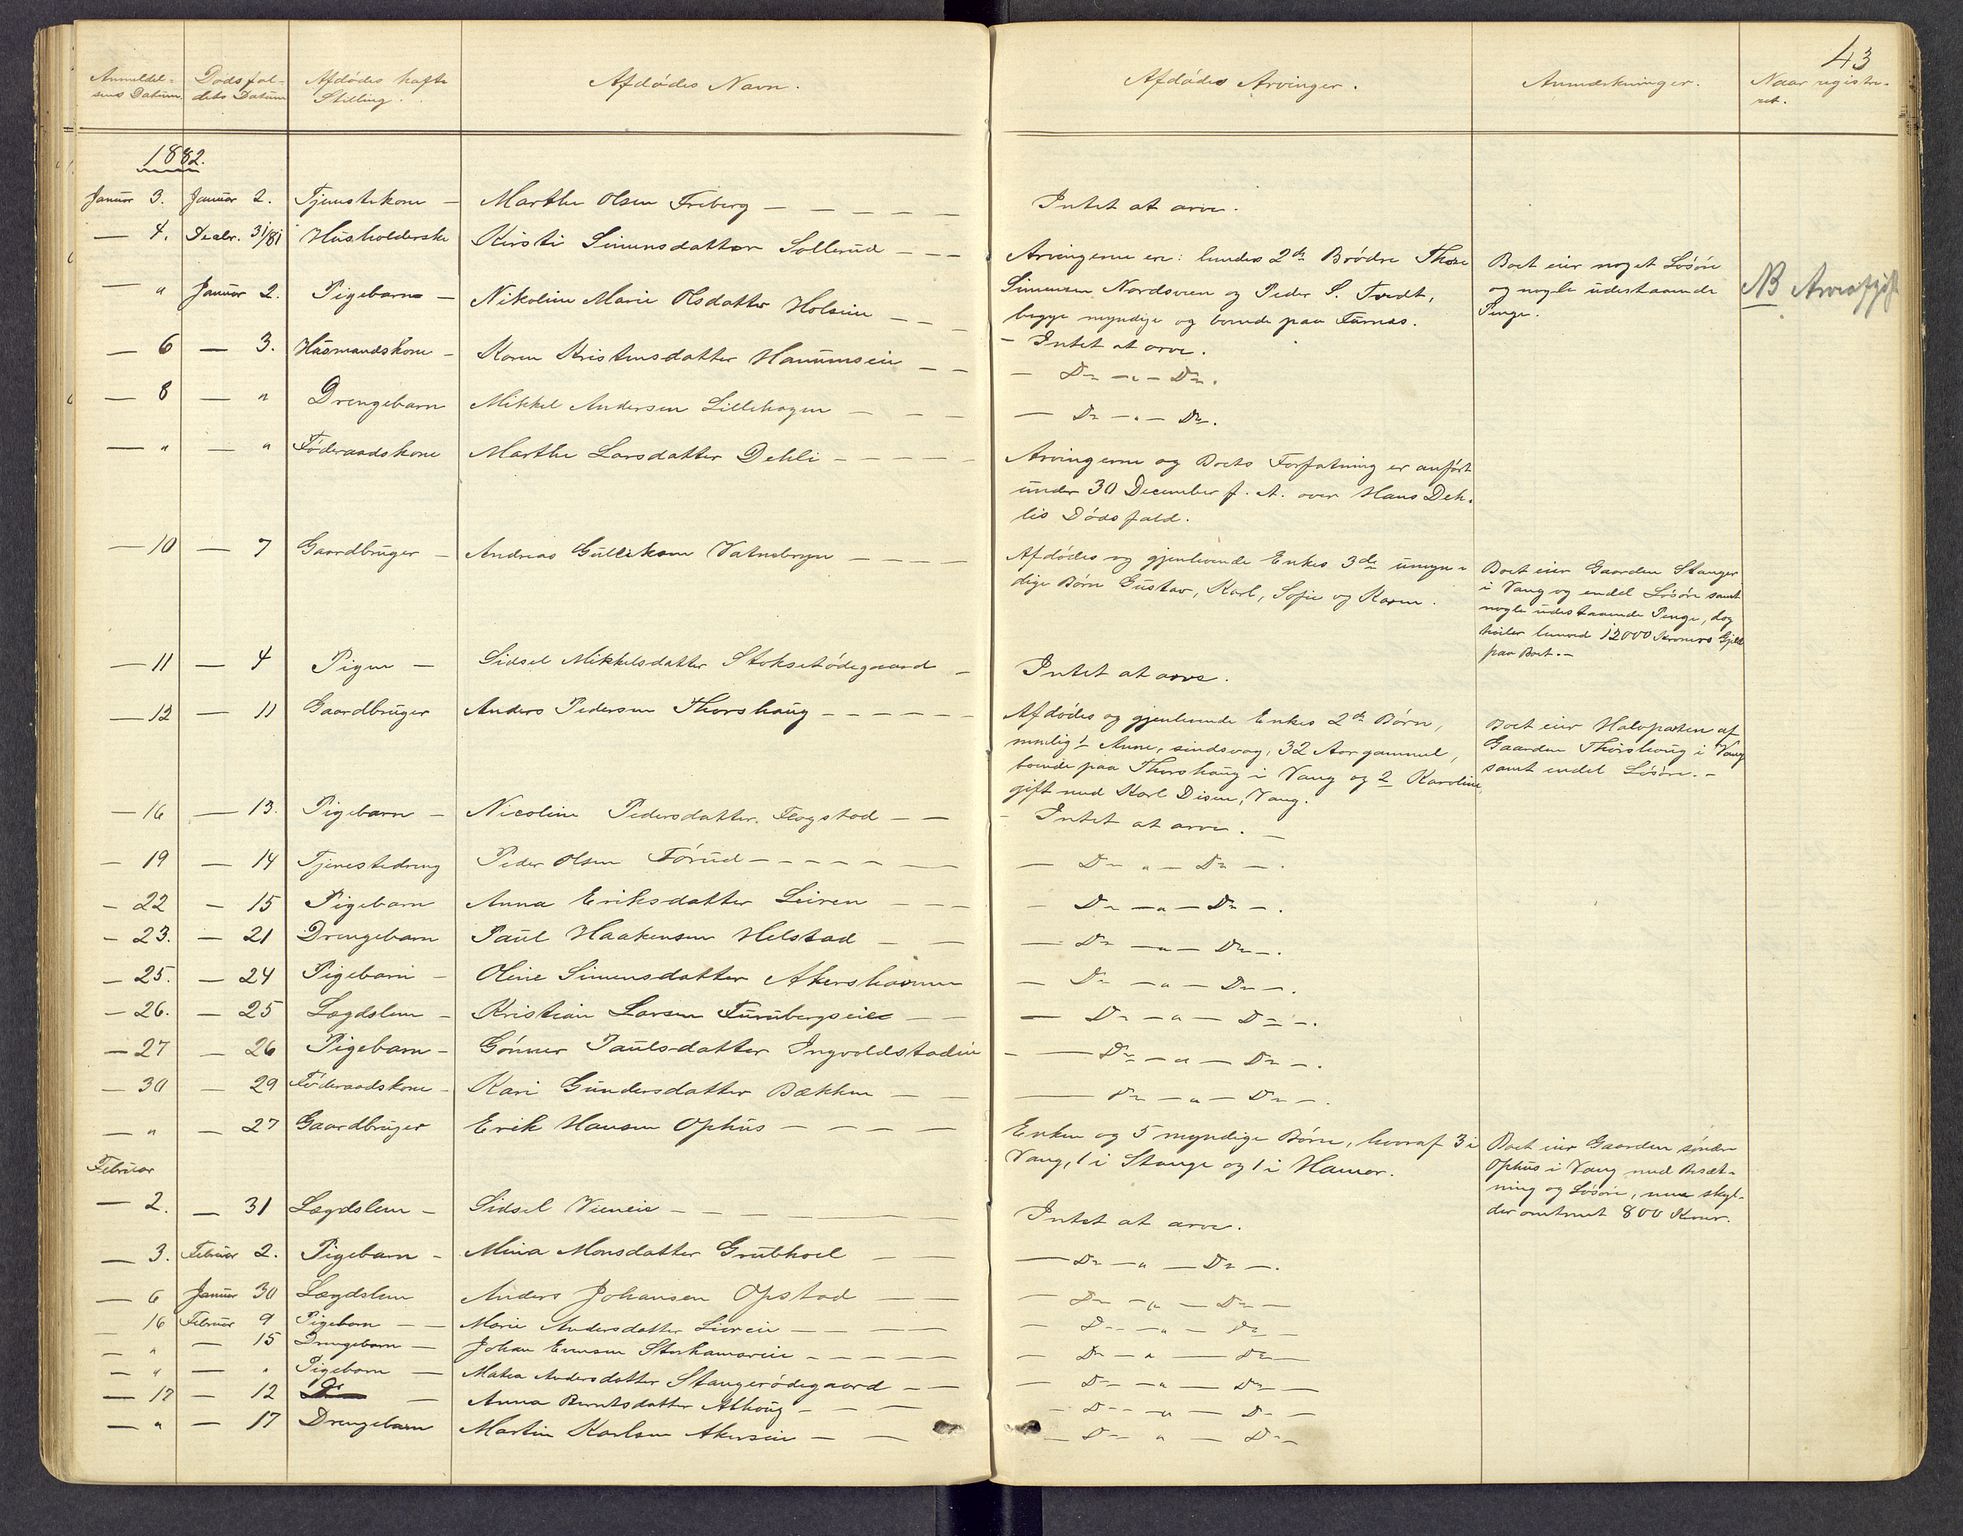 43
Anmeldel- Dødsfal- Afdødes hafte Afdødes Navn. Afdødes Arvinger. Anmærkninger. Naar registre-
sens Datum dets Datum Stilling. ret.
1882.
Januar 3. Januar 2. Tjenestekone — Marthe Olsen Friberg — — — — — Intet at arve.
— 4. Decbr. 31/81 Husholderske Kirsti Simensdatter Sollerud — — — Arvingerne er: hendes 2de Brødre Thore Boet eier noget Løsøre
— " Januar 2. Pigebarn — Nikoline Marie Olsdatter Holseie — — — Simensen Nordsveen og Peder S. Tvedt, og nogle udestaaende NB Arveafgift
begge myndige og boende paa Furnæs. Penge.
— 6 — 3. Husmandskone — Karen Kristensdatter Hanumseie — — — Intet at arve.
— 8 — " Drengebarn Mikkel Andersen Lillehagen — — — — Do — " — Do.
— " — " Føderaadskone Marthe Larsdatter Dehli — — — — — — Do — " — Do.
Arvingerne og Boets Forfatning er anført
under 30 December f. A. over Hans Deh-
lis Dødsfald.
— 10 — 7 Gaardbruger — Andreas Gulliksen Vatnebryn — — — — Afdødes og gjenlevende Enkes 3de umyn- Boet eier Gaarden Stanger
dige Børn Gustav, Karl, Sofie og Karen. i Vang og endel Løsøre samt
nogle udestaaende Penge, dog
hviler henved 12000 Kroners Gjeld
paa Boet. —
— 11 — 4 Pigen — Sidsel Mikkelsdatter Stoksetødegaard — Intet at arve.
— 12 — 11 Gaardbruger Anders Pedersen Thorshaug — — — — — — Afdødes og gjenlevende Enkes 2de Børn, Boet eier Halvparten af
nemlig 1 Anne, sindsvag, 32 Aar gammel, Gaarden Thorshaug i Vang
boende paa Thorshaug i Vang og 2 Karoline, samt endel Løsøre. —
gift med Karl Disen, Vang.
— 16 — 13. Pigebarn — Nicoline Pedersdatter Flagstad — — — Intet at arve. —
— 19 — 14 Tjenestedreng Peder OlsenFørud — — — — — — — Do " — Do — .
— 22 — 15 Pigebarn Anna Eriksdatter Leiren — — — — Do — " — Do — .
— 23. — 21 Drengebarn Paul Haakensen Helstad — — — Do — " — Do — .
— 25. — 24 Pigebarn — Oline Simensdatter Akershagen — Do — " — Do — .
— 26. — 25 Lægdslem — Kristian Larsen Furubergseie — — — Do — " — Do — .
— 27 — 26 Pigebarn — Gunner Paulsdatter Ingvoldstadeie — — Do — " — Do — .
— 30 — 29 Føderaadskone — Kari Gundersdatter Bækken — — — Do — " — Do — .
— " — 27 Gaardbruger Erik Hansen Ophus — — — — — Enken og 5 myndige Børn, hvoraf 3 i Boet eier Gaarden søndre
Vang, 1 i Stange og 1 i Hamar. Ophus i Vang med Besæt-
ning og Løsøre, men skyl-
der omtrent 800 Kroner.
Februar
— 2. — 31 Lægdslem — Sidsel Vieneie — — — — — — — Intet at arve.
— 3. Februar 2. Pigebarn — Mina Monsdatter Grubhoel — — — Do — " — Do — .
— 6 Januar 30 Lægdslem Anders Johansen Opstad — — — Do — " — Do —
— 16 Februar 9 Pigebarn — — Marie Andersdatter Liereie — — — — Do — " — Do —
— " — 15 Drengebarn — Johan Evensen Storhamareie — — — — — Do — " — Do —
— " — " Pigebarn — Mathea Andersdatter Stangerødegaard — — — Do — " — Do —
— 17 — 12 Do — Anna Berntsdatter Alhaug — — — — Do — " — Do —
— " — 17 Drengebarn Martin Karlsen Akerseie — — — Do " — Do —